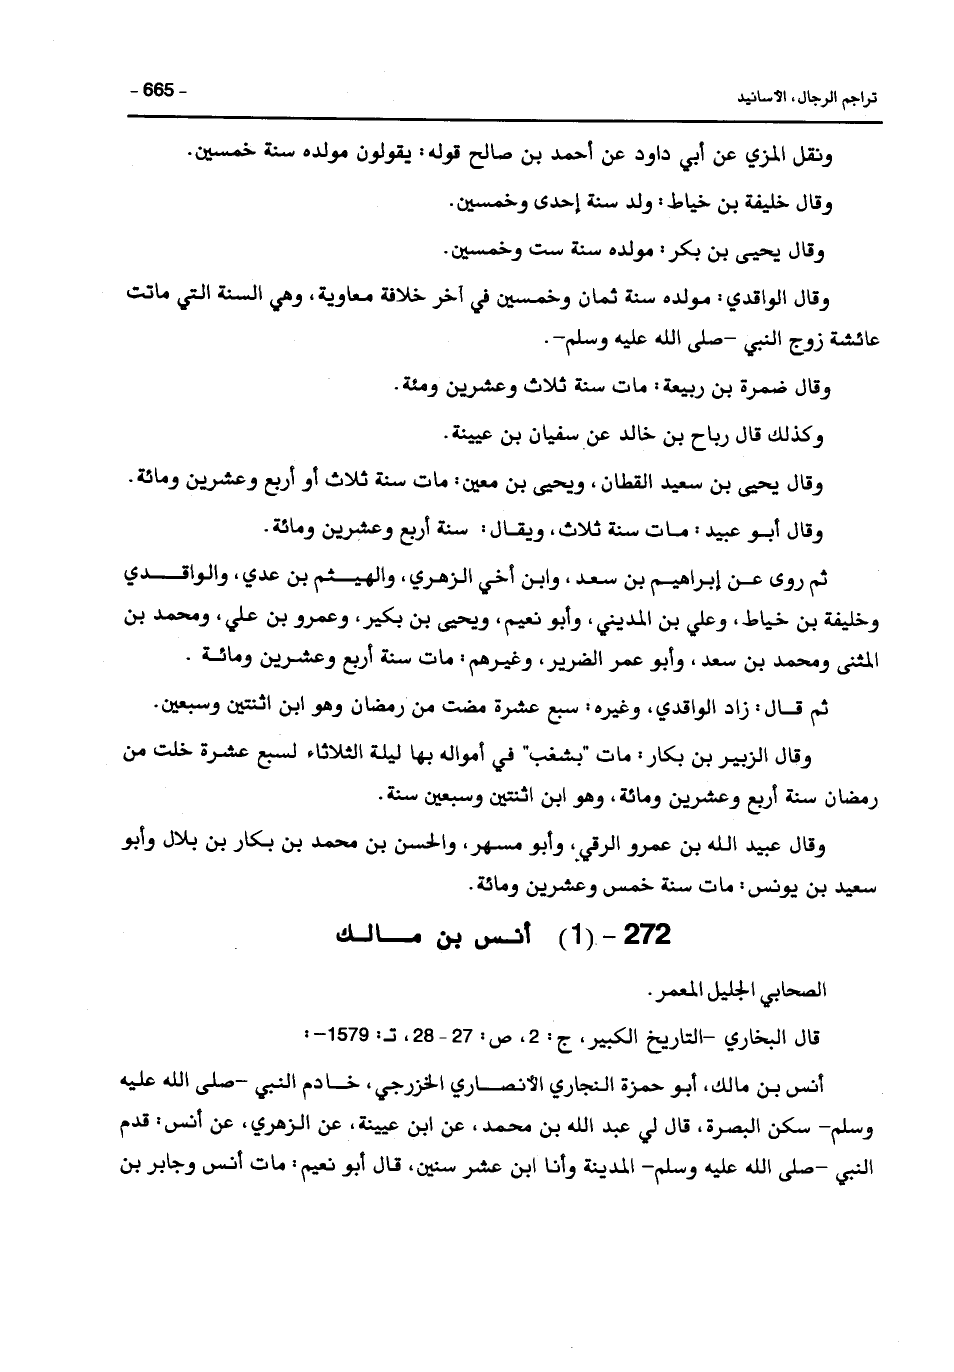 تراجم الرجال، الأسانيد
- 665 -
ونقل المزي عن أبي داود عن أحمد بن صالح قوله: يقولون مولده سنة خمسين.
وقال خليفة بن خياط: ولد سنة إحدى وخمسين.
وقال يحيى بن بكر: مولده سنة ست وخمسين.
وقال الواقدي: مولده سنة ثمان وخمسين في آخر خلافة معاوية، وهي السنة التي ماتت
عائشة زوج النبي -صلى الله عليه وسلم-.
وقال ضمرة بن ربيعة: مات سنة ثلاث وعشرين ومئة.
وكذلك قال رباح بن خالد عن سفيان بن عيينة.
وقال يحيى بن سعيد القطان، ويحيى بن معين: مات سنة ثلاث أو أربع وعشرين ومائة.
وقال أبو عبيد: مات سنة ثلاث، ويقال: سنة أربع وعشرين ومائة.
ثم روى عن إبراهيم بن سعد، وابن أخي الزهري، والهيثم بن عدي، والواقدي
وخليفة بن خياط، وعلي بن المديني، وأبو نعيم، ويحيى بن بكير، وعمرو بن علي، ومحمد بن
المثنى ومحمد بن سعد، وأبو عمر الضرير، وغيرهم: مات سنة أربع وعشرين ومائة .
ثم قال: زاد الواقدي، وغيره: سبع عشرة مضت من رمضان وهو ابن اثنتين وسبعين.
وقال الزبير بن بكار: مات "بشغب" في أمواله بها ليلة الثلاثاء لسبع عشرة خلت من
رمضان سنة أربع وعشرين ومائة، وهو ابن اثنتين وسبعين سنة.
وقال عبيد الله بن عمرو الرقي، وأبو مسهر، والحسن بن محمد بن بكار بن بلال وأبو
سعيد بن يونس: مات سنة خمس وعشرين ومائة.
272 - (1) أنس بن مالك
الصحابي الجليل المعمر.
قال البخاري -التاريخ الكبير، ج: 2، ص: 27 - 28، تـ: 1579-:
أنس بن مالك، أبو حمزة النجاري الأنصاري الخزرجي، خادم النبي -صلى الله عليه
وسلم- سكن البصرة، قال لي عبد الله بن محمد، عن ابن عيينة، عن الزهري، عن أنس: قدم
النبي -صلى الله عليه وسلم- المدينة وأنا ابن عشر سنين، قال أبو نعيم: مات أنس وجابر بن